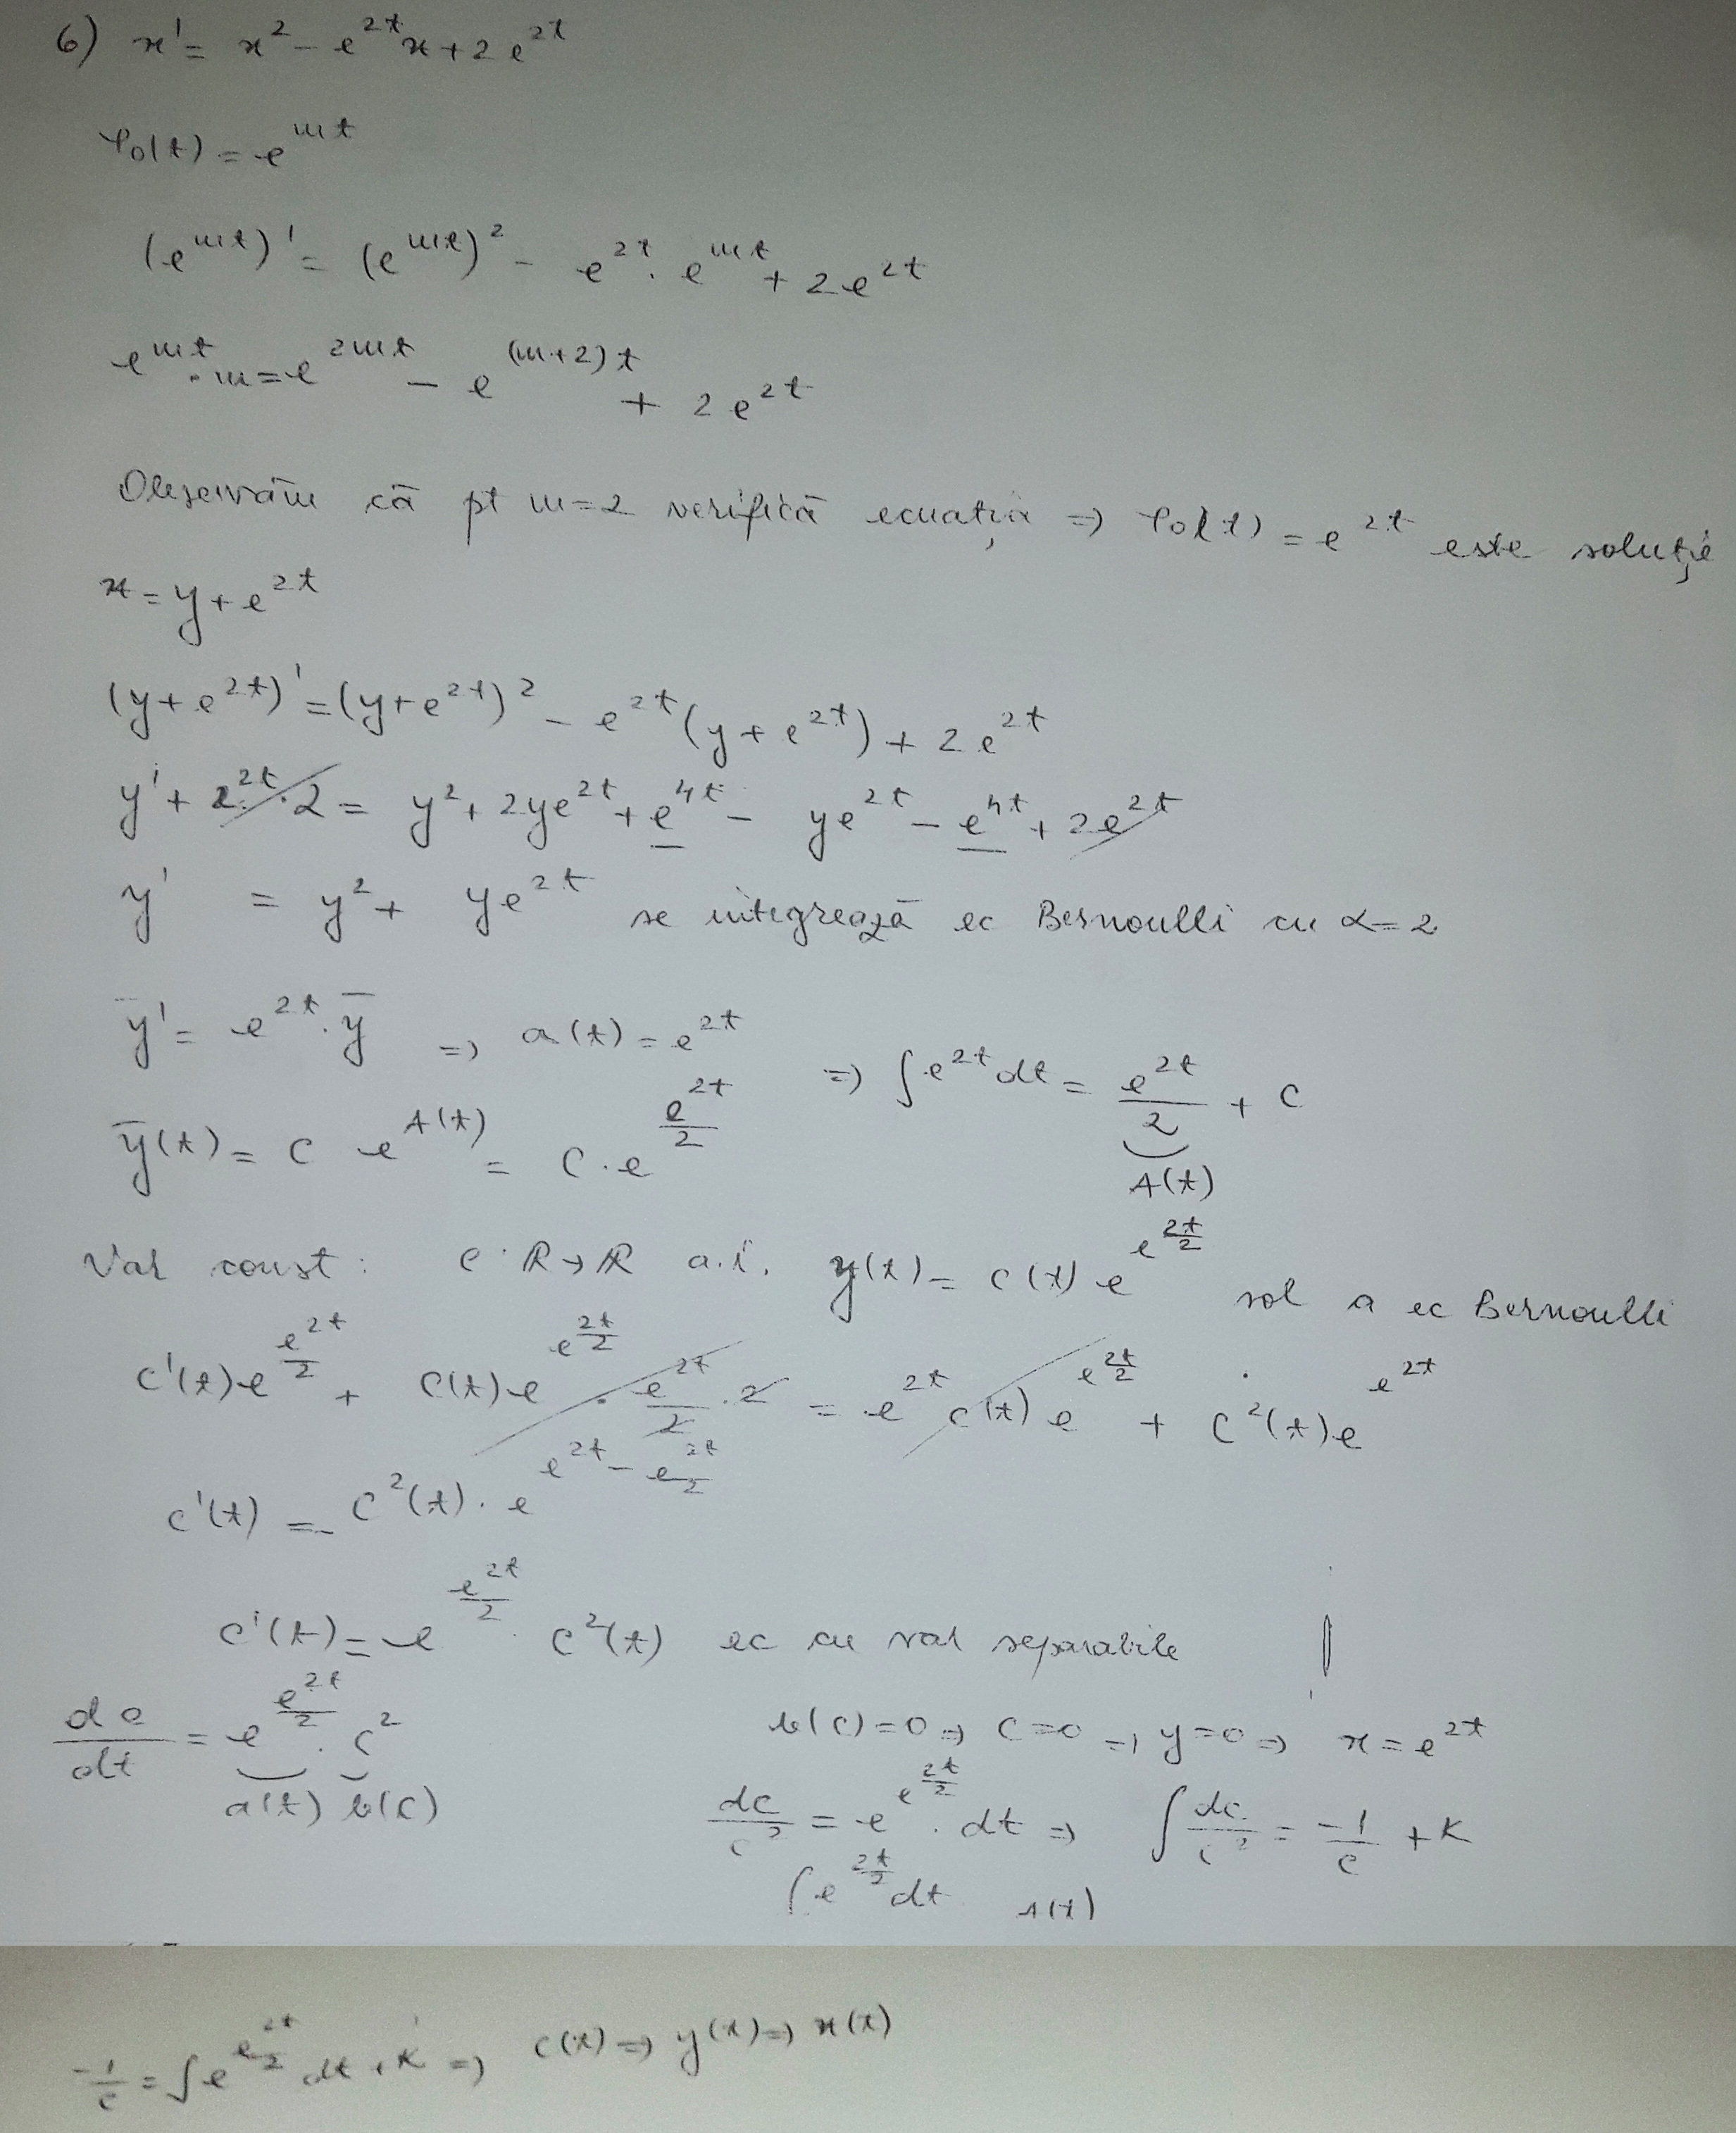 6) x' = x² - e^{2t}x + 2e^{2t}
φ₀(t) = e^{mt}
(e^{mt})' = (e^{mt})² - e^{2t} · e^{mt} + 2e^{2t}
e^{mt} · m = e^{2mt} - e^{(m+2)t} + 2e^{2t}
Observăm că pt m=2 verifică ecuația => φ₀(t) = e^{2t} este soluție
x = y + e^{2t}
(y+e^{2t})' = (y+e^{2t})² - e^{2t}(y+e^{2t}) + 2e^{2t}
y' + e^{2t}·2 = y² + 2ye^{2t} + e^{4t} - ye^{2t} - e^{4t} + 2e^{2t}
y' = y² + ye^{2t} se integrează ec Bernoulli cu α=2
ȳ' = e^{2t}·ȳ => a(t) = e^{2t} => ∫e^{2t}dt = e^{2t}/2 + C
A(t)
ȳ(t) = C e^{A(t)} = C·e^{e^{2t}/2}
Var const: c: R→R a.î. y(t) = c(t) e^{e^{2t/2}} sol a ec Bernoulli
c'(t)e^{e^{2t}/2} + c(t)e^{e^{2t/2}} · e^{2t}/2 · 2 = e^{2t} c(t) e^{e^{2t/2}} + c²(t)e^{e^{2t}}
c'(t) = c²(t)·e^{e^{2t} - e^{2t}/2}
c'(t) = e^{e^{2t}/2} · c²(t) ec cu var separabile
dc/dt = e^{e^{2t}/2} · c²
a(t) b(c)
b(c)=0 => c=0 => y=0 => x=e^{2t}
dc/c² = e^{e^{2t/2}} · dt => ∫dc/c² = -1/c + K
∫e^{2t/2}dt A(t)
-1/c = ∫e^{e^{2t}/2} dt + K => c(t) => y(t) => x(t)